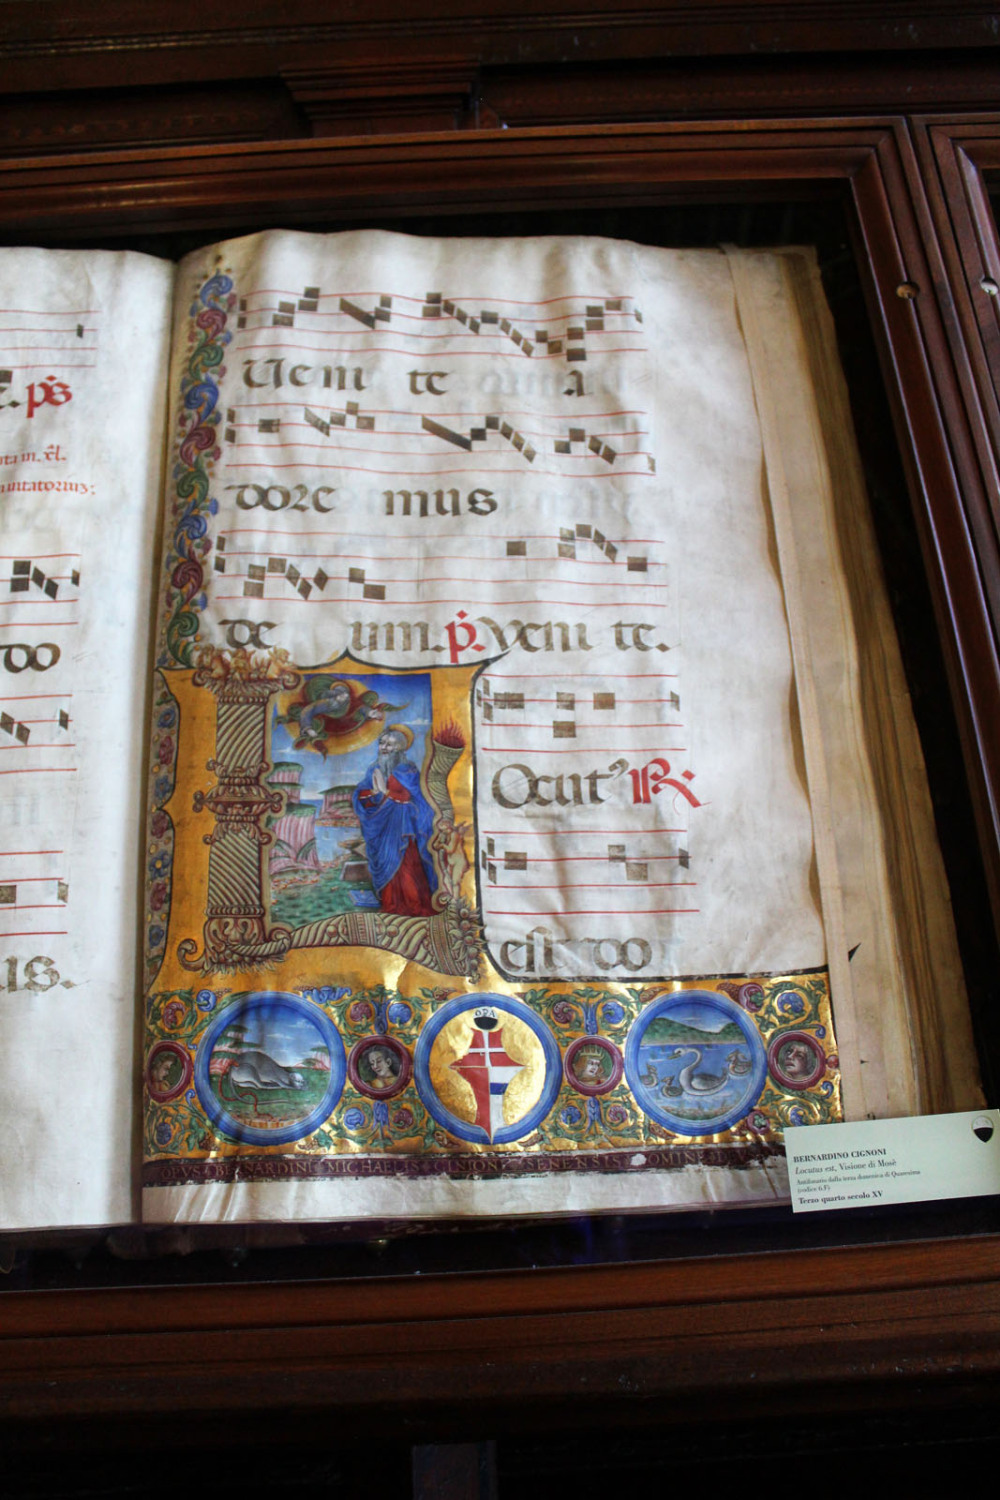 ps
ta in .xl.
do
us.
Veni te a
dore mus
de um. p. veni te.
Ocut⁹ R
est do
OPA
OPVS BERNARDINI MICHAELIS CIGNONI SENENSIS
BERNARDINO CIGNONI
Locutus est, Visione di Mosè
Antifonario dalla terza domenica di Quaresima
(codice 6.F)
Terzo quarto secolo XV